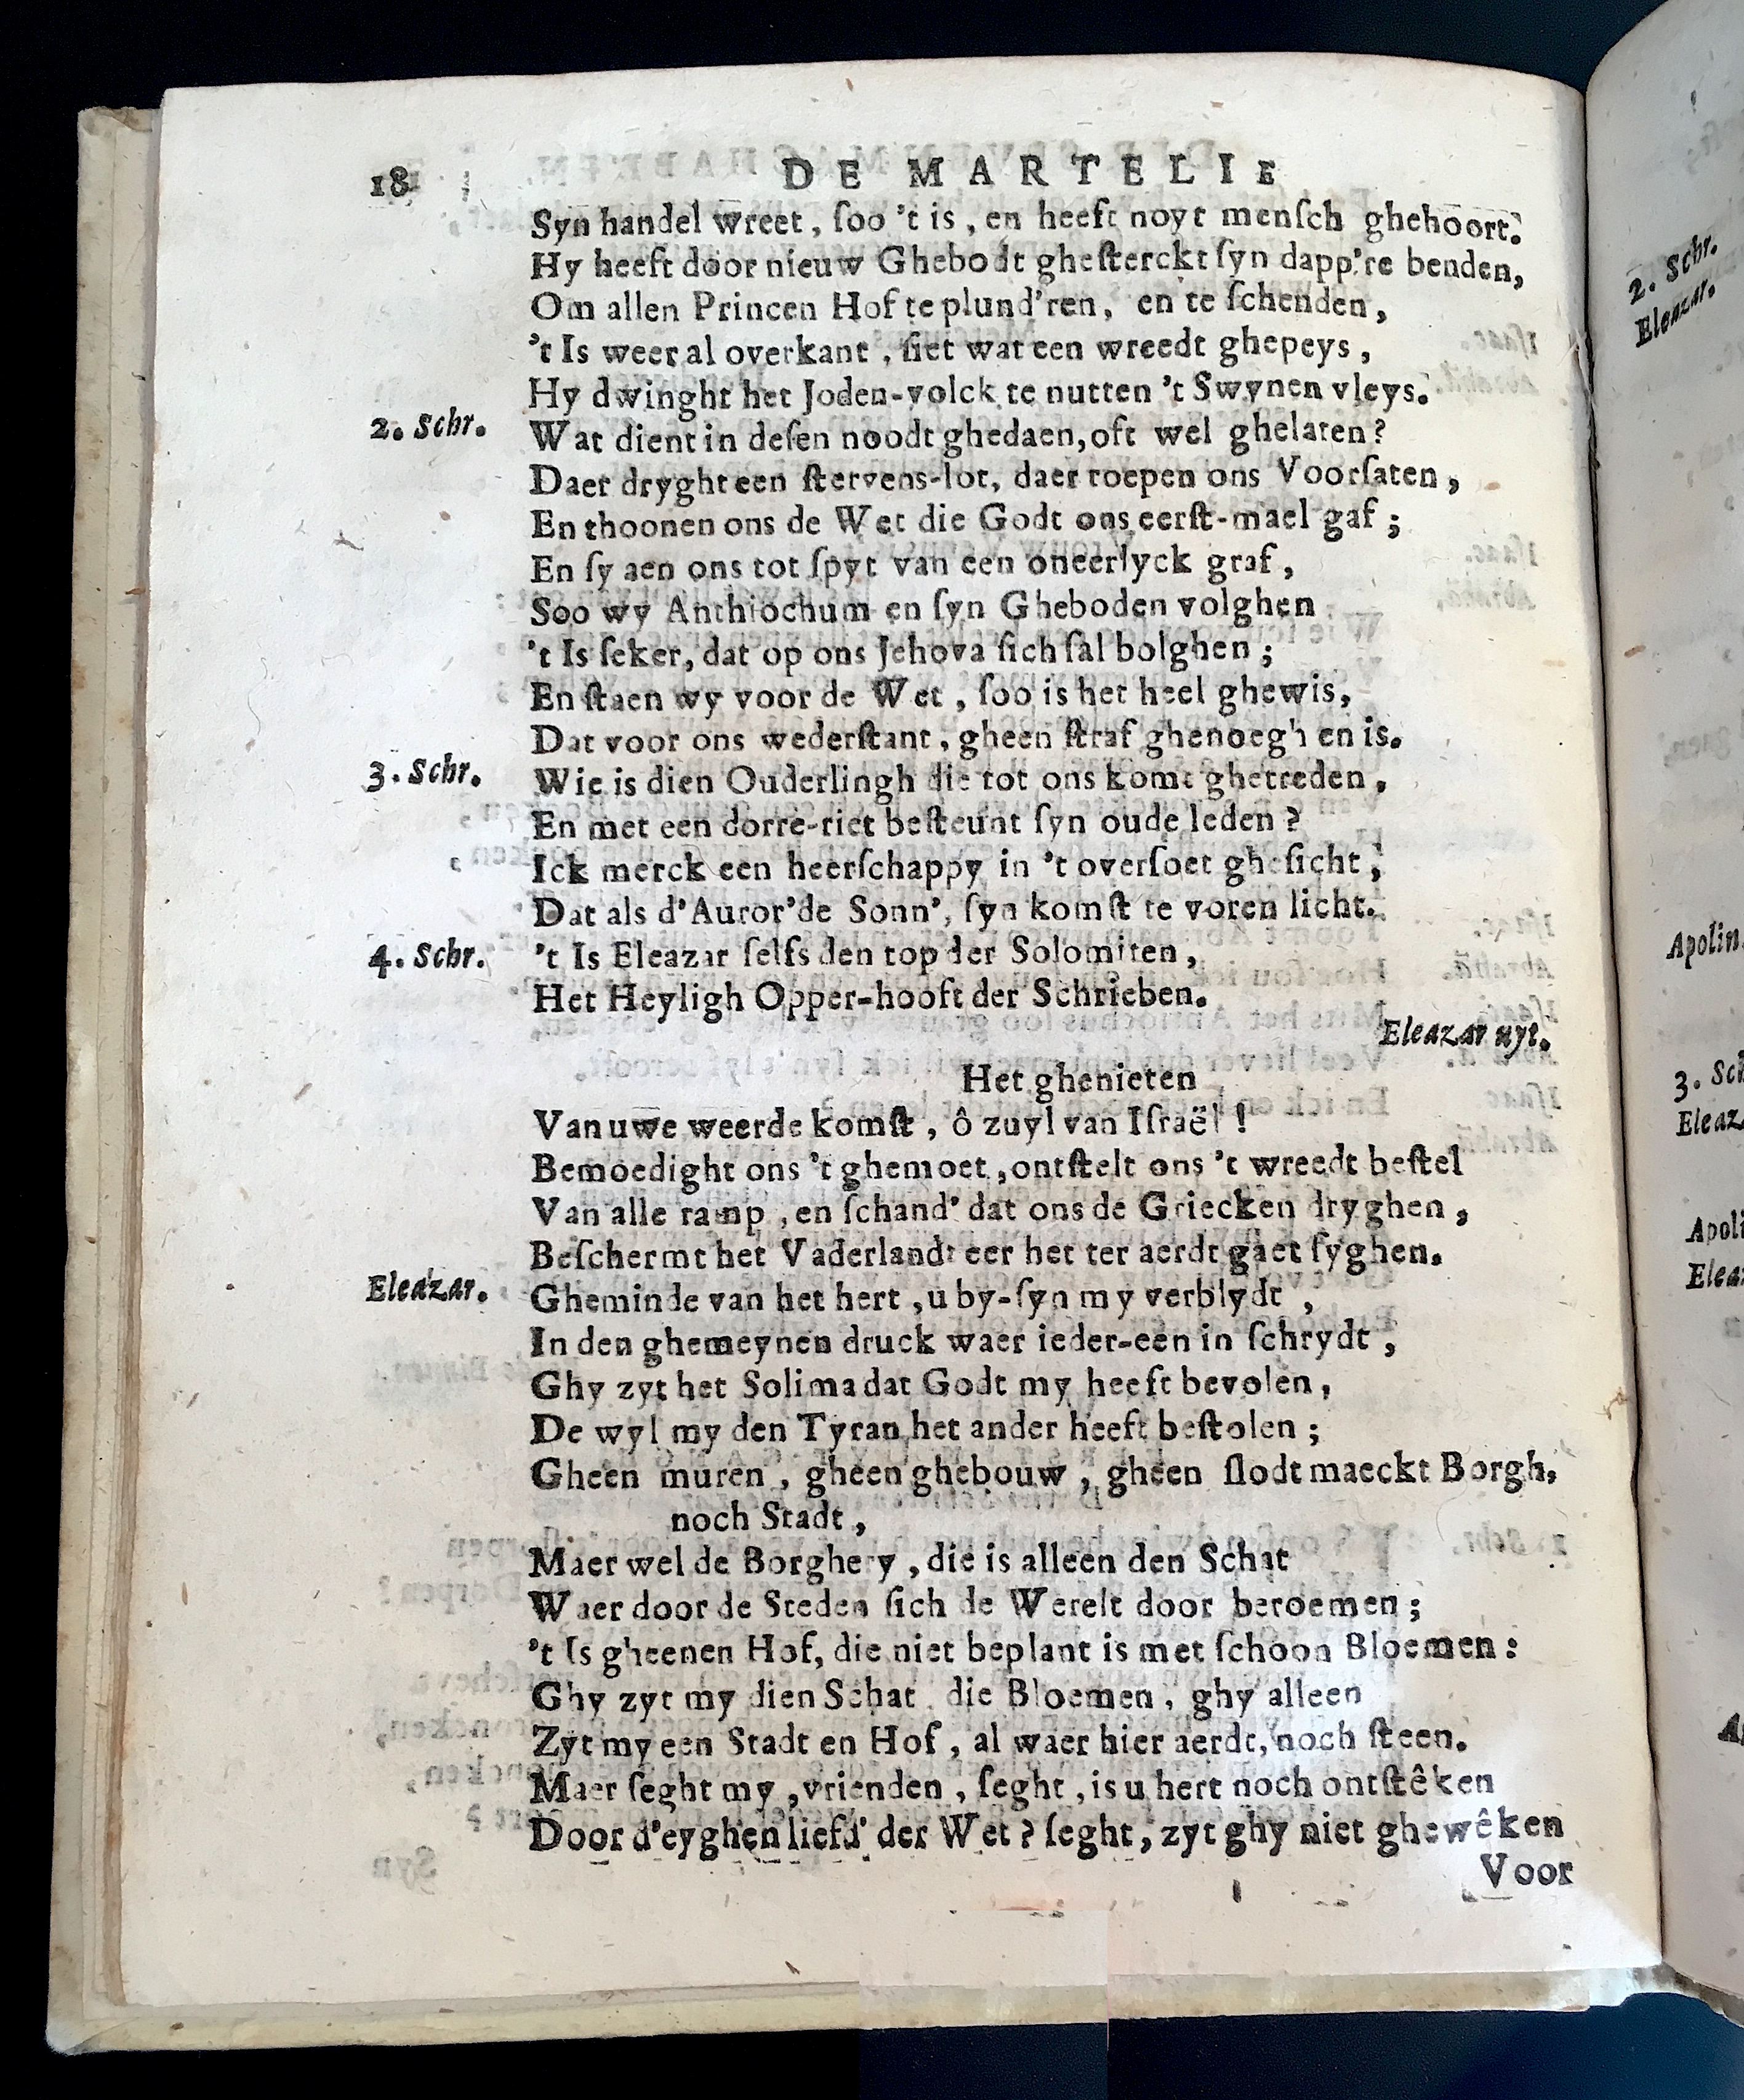 18 DE MARTELIE
Syn handel wreet, ſoo 't is, en heeft noyt menſch ghehoort.
Hy heeft door nieuw Ghebodt gheſterckt ſyn dapp're benden,
Om allen Princen Hof te plund'ren, en te ſchenden,
't Is weer al overkant, ſiet wat een wreedt ghepeys,
Hy dwinght het Joden-volck te nutten 't Swynen vleys.
2. Schr. Wat dient in deſen noodt ghedaen, oft wel ghelaten?
Daer dryght een ſtervens-lot, daer roepen ons Voorſaten,
En thoonen ons de Wet die Godt ons eerſt-mael gaf;
En ſy aen ons tot ſpyt van een oneerlyck graf,
Soo wy Anthiochum en ſyn Gheboden volghen
't Is ſeker, dat op ons Jehova ſich ſal bolghen;
En ſtaen wy voor de Wet, ſoo is het heel ghewis,
Dat voor ons wederſtant, gheen ſtraf ghenoegh en is.
3. Schr. Wie is dien Ouderlingh die tot ons komt ghetreden,
En met een dorre-riet beſteunt ſyn oude leden?
Ick merck een heerſchappy in 't overſoet gheſicht,
Dat als d'Auror'de Sonn', ſyn komſt te voren licht.
4. Schr. 't Is Eleazar ſelfs den top der Solomiten,
Het Heyligh Opper-hooft der Schrieben.
Eleazar uyt.
Het ghenieten
Van uwe weerde komſt, ô zuyl van Iſraël!
Bemoedight ons 't ghemoet, ontſtelt ons 't wreedt beſtel
Van alle ramp, en ſchand' dat ons de Griecken dryghen,
Beſchermt het Vaderlandt eer het ter aerdt gaet ſyghen.
Eleazar. Gheminde van het hert, u by-ſyn my verblydt,
In den ghemeynen druck waer ieder-een in ſchrydt,
Ghy zyt het Solima dat Godt my heeft bevolen,
De wyl my den Tyran het ander heeft beſtolen;
Gheen muren, gheen ghebouw, gheen ſlodt maeckt Borgh,
noch Stadt,
Maer wel de Borghery, die is alleen den Schat
Waer door de Steden ſich de Werelt door beroemen;
't Is gheenen Hof, die niet beplant is met ſchoon Bloemen:
Ghy zyt my dien Schat, die Bloemen, ghy alleen
Zyt my een Stadt en Hof, al waer hier aerdt, noch ſteen.
Maer ſeght my, vrienden, ſeght, is u hert noch ontſtêken
Door d'eyghen liefd' der Wet? ſeght, zyt ghy niet ghewêken
Voor
2. Schr.
Eleazar.
Apolin.
3. Sch
Eleaz
Apoli
Elea